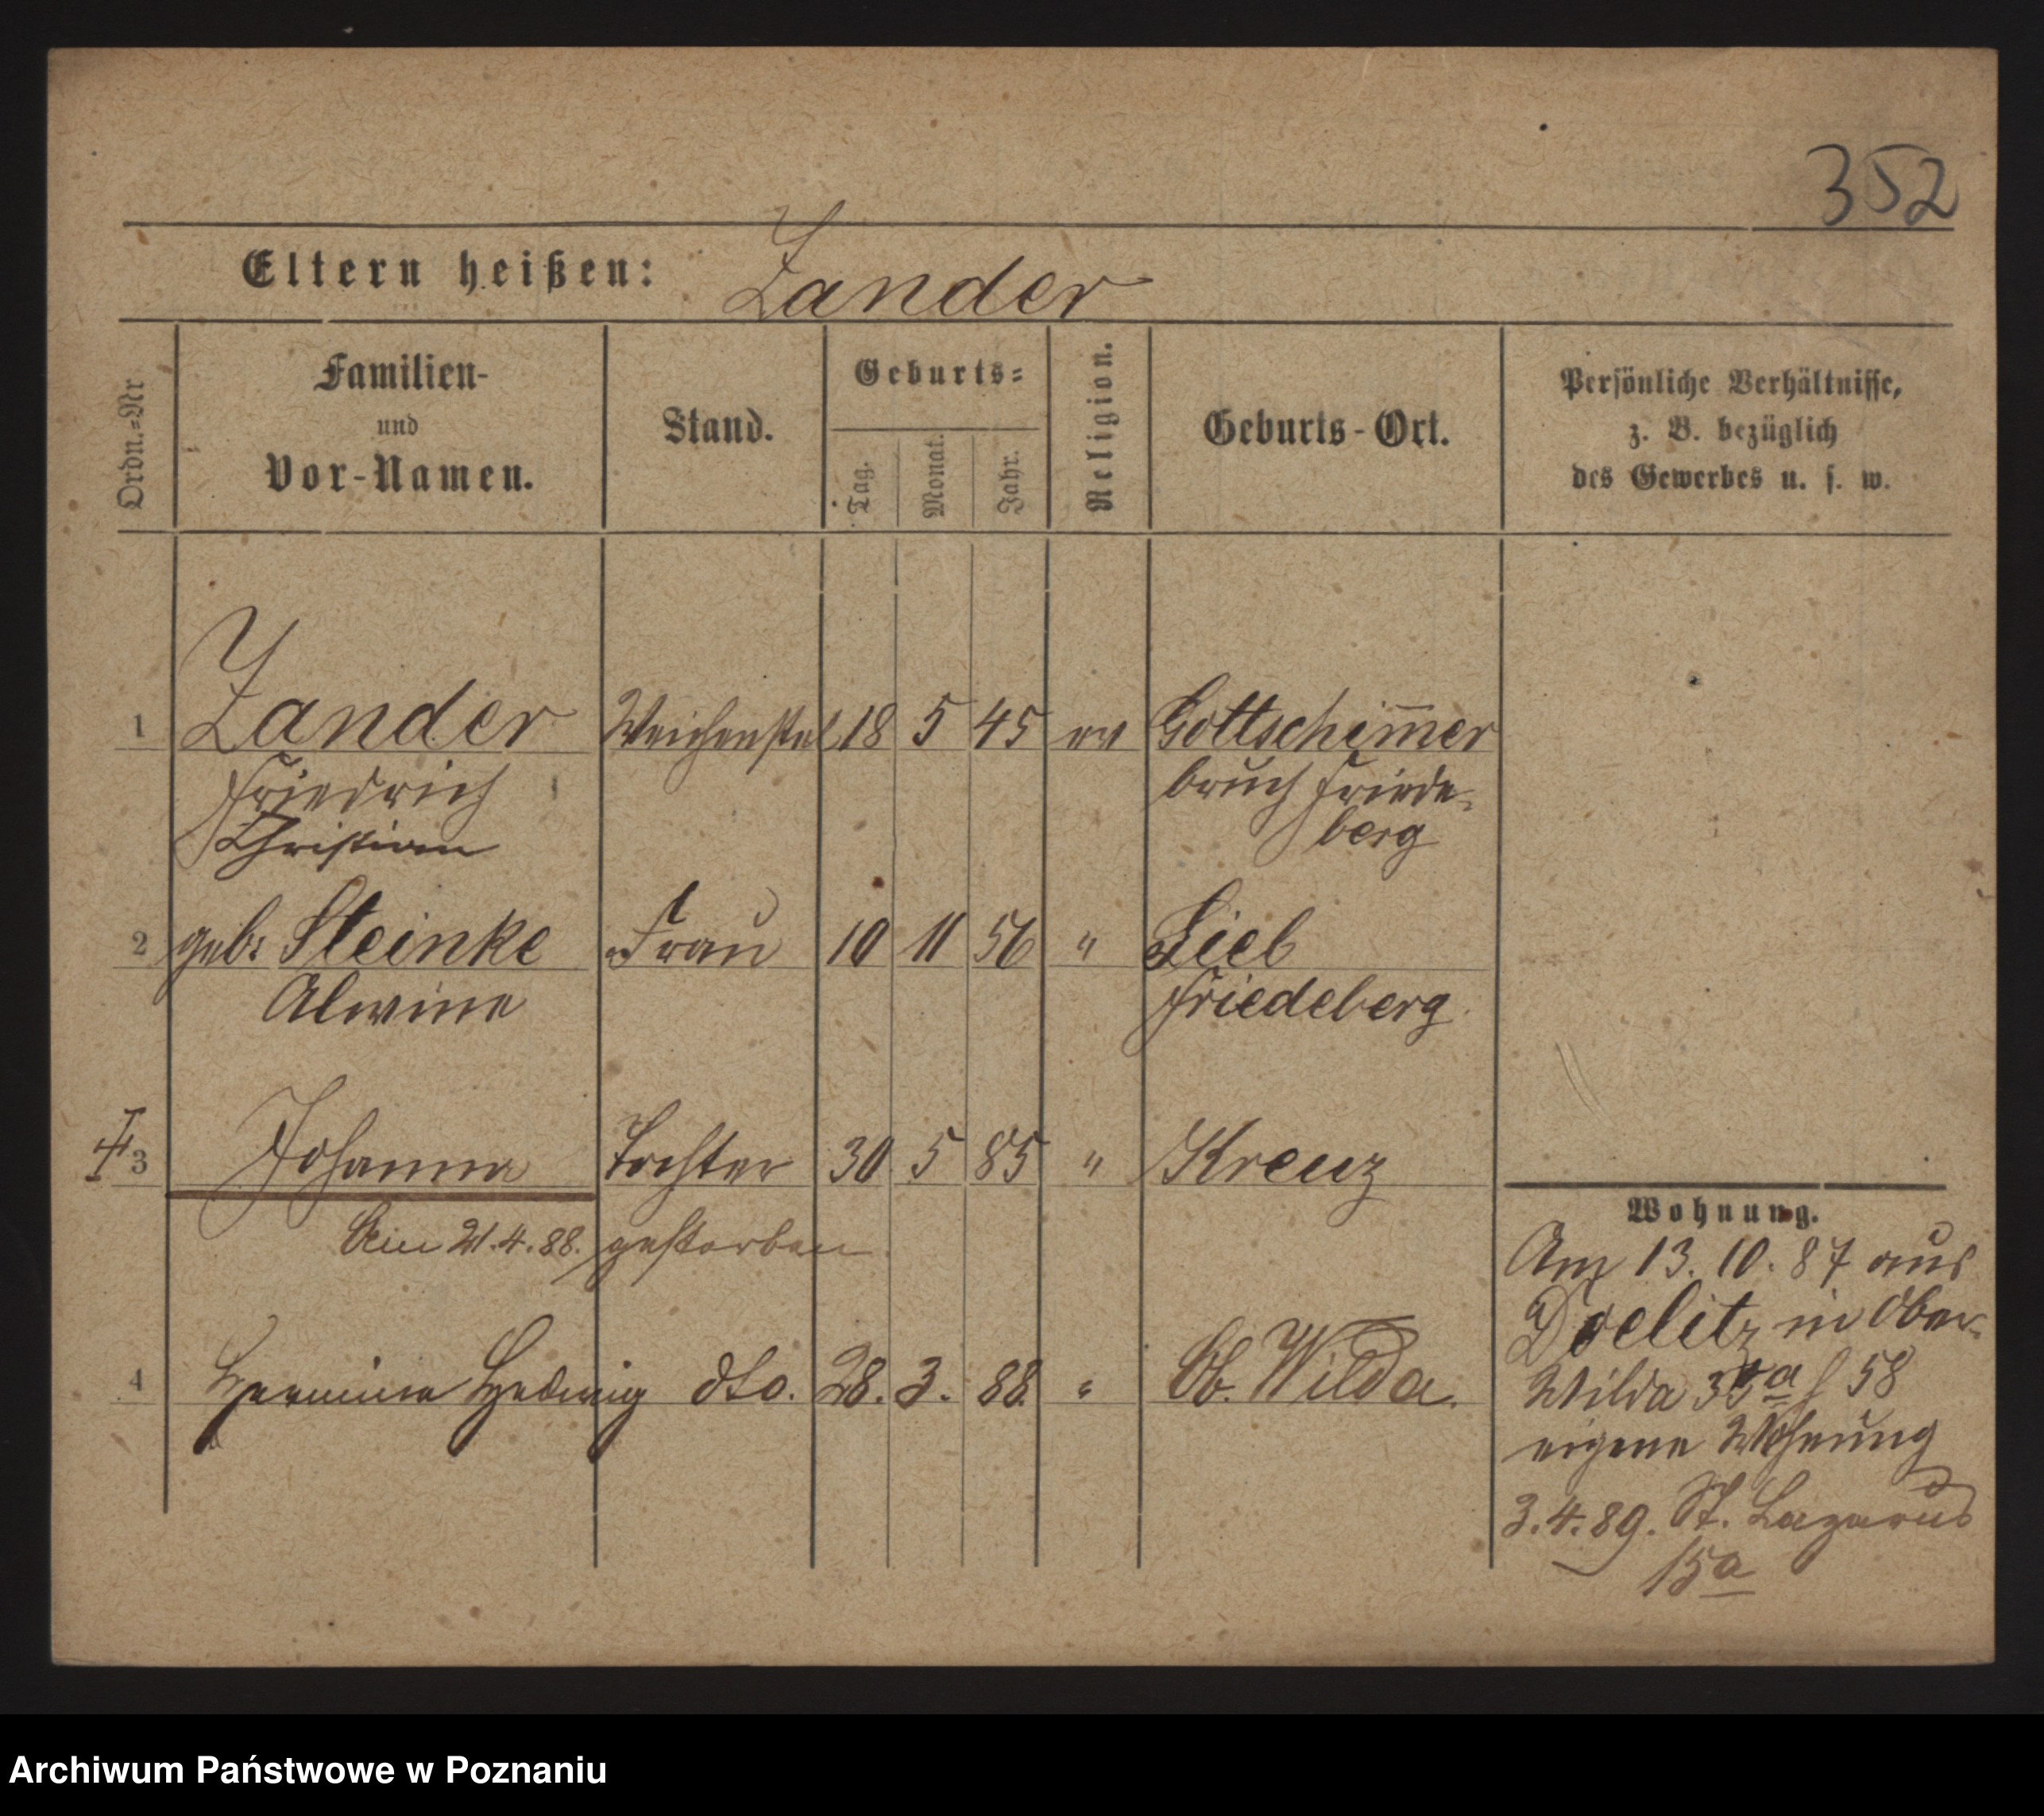 352
Eltern heißen: Zander
Ordn.=Nr
Familien-
und
Vor-Namen.
Stand.
Geburts=
Tag.
Monat.
Jahr.
Religion.
Geburts-Ort.
Persönliche Verhältnisse,
z. B. bezüglich
des Gewerbes u. s. w.
1 Zander Weichenstel 18 5 45 ev Gottschim̅er
Friedrich bruch Friede-
Christian berg
2 geb: Steinke Frau 10 11 56 " Lieb
Alwine Friedeberg
3 Johanna Tochter 30 5 85 " Kreuz
Am 21.4.88. gestorben
4 Hermine Hedwig dto. 28. 3. 88. " Ob. Wilda.
Wohnung.
Am 13.10.87 aus
Doelitz in Ober-
Wilda 58
eigene Wohnung
3.4.89. St. Lazarus
15a
Archiwum Państwowe w Poznaniu